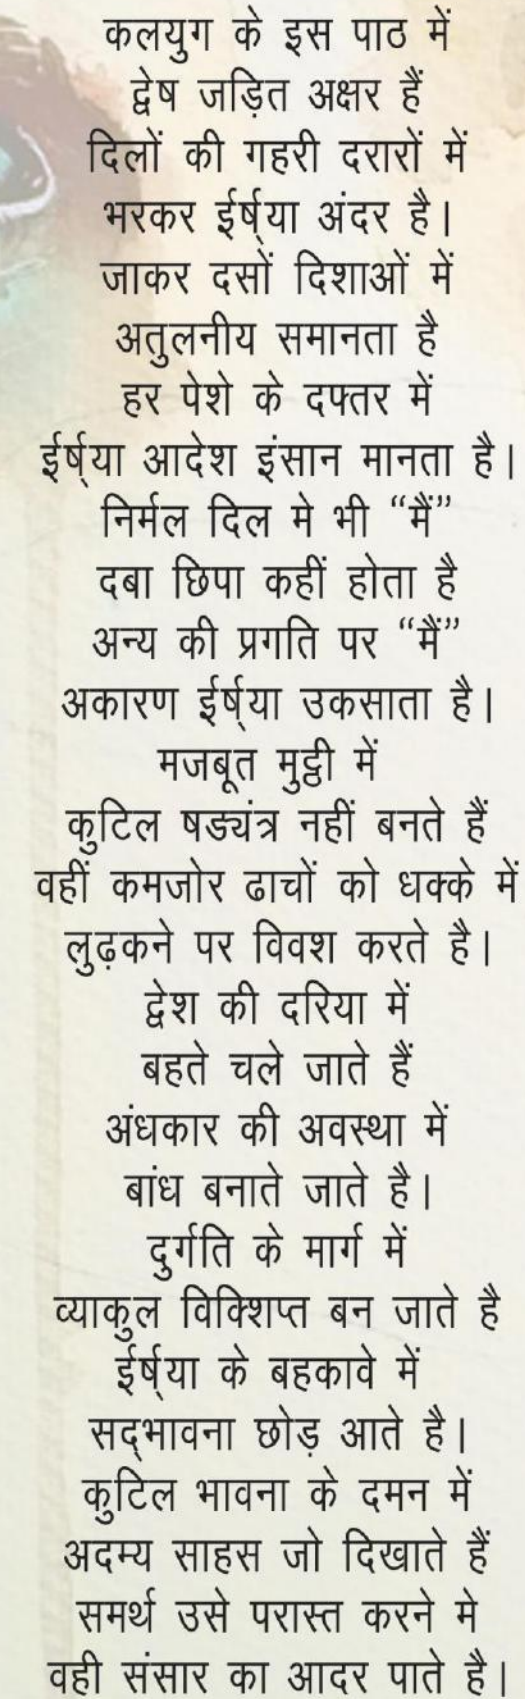 कलयुग के इस पाठ में
द्वेष जड़ित अक्षर हैं
दिलों की गहरी दरारों में
भरकर ईर्ष्या अंदर है।
जाकर दसों दिशाओं में
अतुलनीय समानता है
हर पेशे के दफ्तर में
ईर्ष्या आदेश इंसान मानता है।
निर्मल दिल मे भी “मैं”
दबा छिपा कहीं होता है
अन्य की प्रगति पर “मैं”
अकारण ईर्ष्या उकसाता है।
मजबूत मुट्ठी में
कुटिल षड्यंत्र नहीं बनते हैं
वहीं कमजोर ढाचों को धक्के में
लुढ़कने पर विवश करते है।
द्वेश की दरिया में
बहते चले जाते हैं
अंधकार की अवस्था में
बांध बनाते जाते है।
दुर्गति के मार्ग में
व्याकुल विक्शिप्त बन जाते है
ईर्ष्या के बहकावे में
सद्भावना छोड़ आते है।
कुटिल भावना के दमन में
अदम्य साहस जो दिखाते हैं
समर्थ उसे परास्त करने मे
वही संसार का आदर पाते है।